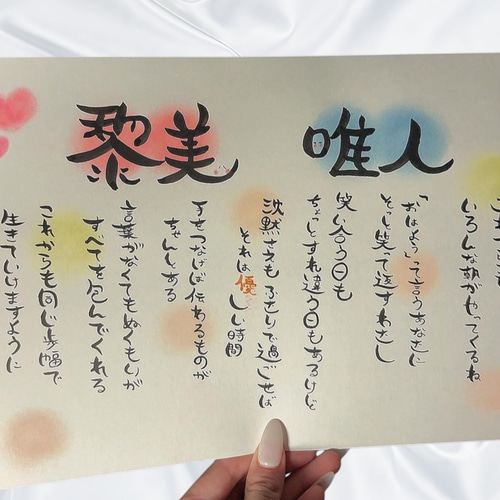 唯人
黎美
これからも
いろんな朝がやってくるね
「おはよう」って言うあなたに
そっと笑って返すわたし
笑い合う日も
ちょっとすれ違う日もあるけど
沈黙さえもふたりで過ごせば
それは優しい時間
手をつなげば伝わるものが
ちゃんとある
言葉がなくてもぬくもりが
すべてを包んでくれる
これからも同じ歩幅で
生きていけますように